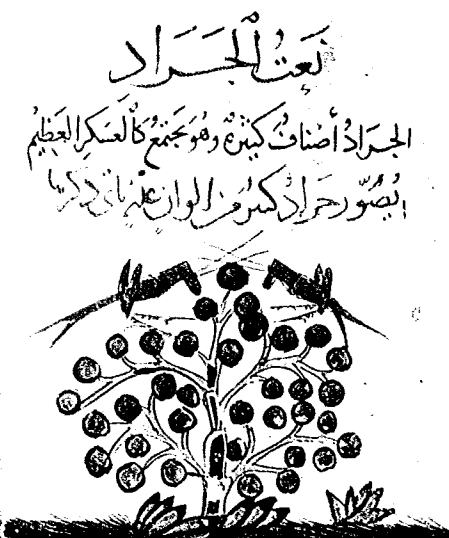 نَعتُ الْجَرَاد
الجرَادُ أصْنافٌ كَثيرَةٌ وهُوَ يجتَمعُ كالْعَسْكَرِ العَظِيمُ
يُصَوَّر جَرادٌ كثيرٌ من الوانٍ